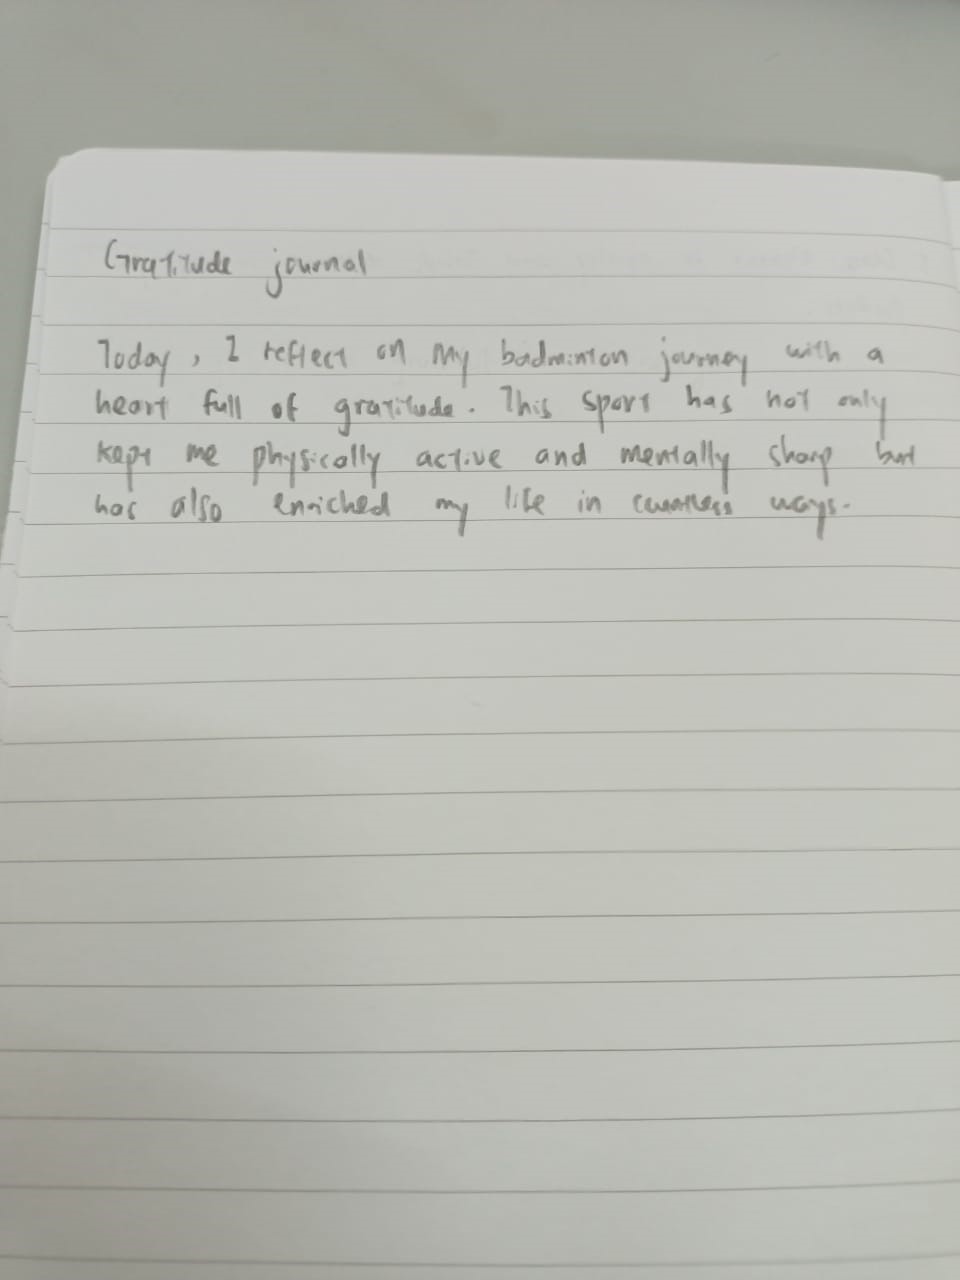 Gratitude journal
Today, I reflect on my badminton journey with a
heart full of gratitude. This sport has not only
kept me physically active and mentally sharp but
has also enriched my life in countless ways.